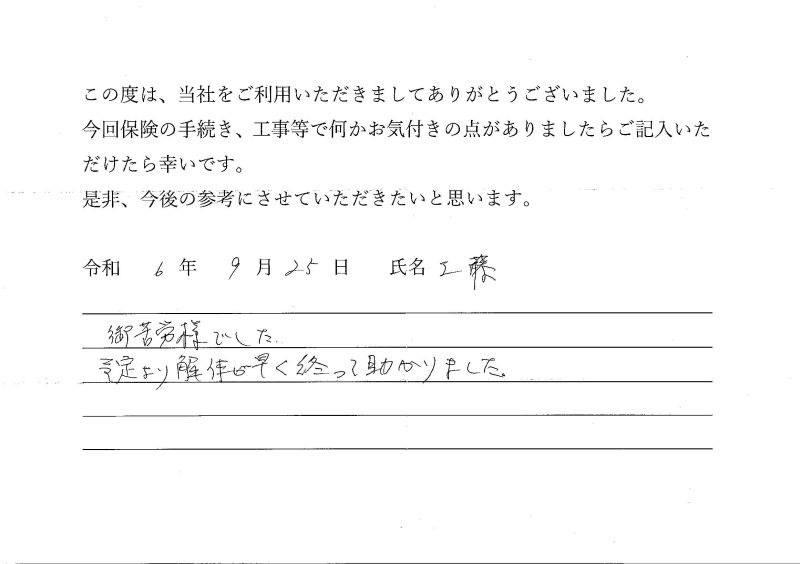 この度は、当社をご利用いただきましてありがとうございました。
今回保険の手続き、工事等で何かお気付きの点がありましたらご記入いた
だけたら幸いです。
是非、今後の参考にさせていただきたいと思います。
令和 6 年 9 月 25 日 氏名 工藤
御苦労様でした。
予定より解体が早く終って助かりました。